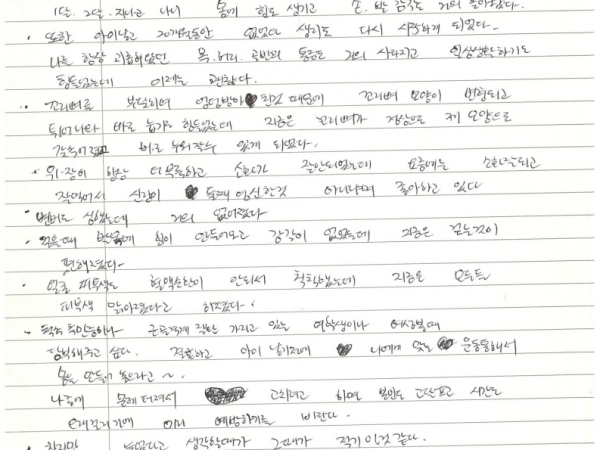 1달. 2달. 지나고 나니 몸에 힘도 생기고 손. 발 거의 좋아졌다.
· 또한 아이낳고 20개월동안 없었던 생리도 다시 시작하게 되었다.
나를 항상 괴롭혔던 목. 허리. 골반의 통증도 거의 사라지고 일상생활하기도
힘들었는데 이제는 괜찮다.
· 꼬리뼈로 엉덩방아 된것 때문에 꼬리뼈 모양이 변형되고
튀어나와 바로 눕기도 힘들었는데 지금은 꼬리뼈가 정상으로 제 모양으로
바로 누워잘수 있게 되었다.
· 위·장이 항상 더부룩하고 소화가 잘안되었는데 요즘에는 소화잘되고
직장에서 신랑이 둘째 임신한것 아니냐며 좋아하고 있다
· 변비도 심했는데 거의 없어졌다
· 걸을때 힘이 안들어오고 감각이 없었는데 지금은 걷는것이
편해졌다
· 얼굴 피부색도 혈액순환이 안되서 칙칙했는데 지금은 모두들
피부색 맑아졌다고 하셨다.
· 근육 가지고 있는 여학생이나 여성분께
당부해주고 싶다. 결혼하고 아이 낳기전에 나에게 맞는 운동통해서
몸을 만들어 놓으라고 ~.
나중에 문제 터져서 고치려고 하면 본인도 고달프고 시간도
오래걸리기에 미리 예방하기를 바란다.
· 하지만 늦었다고 생각할때가 그때가 적기인것 같다.